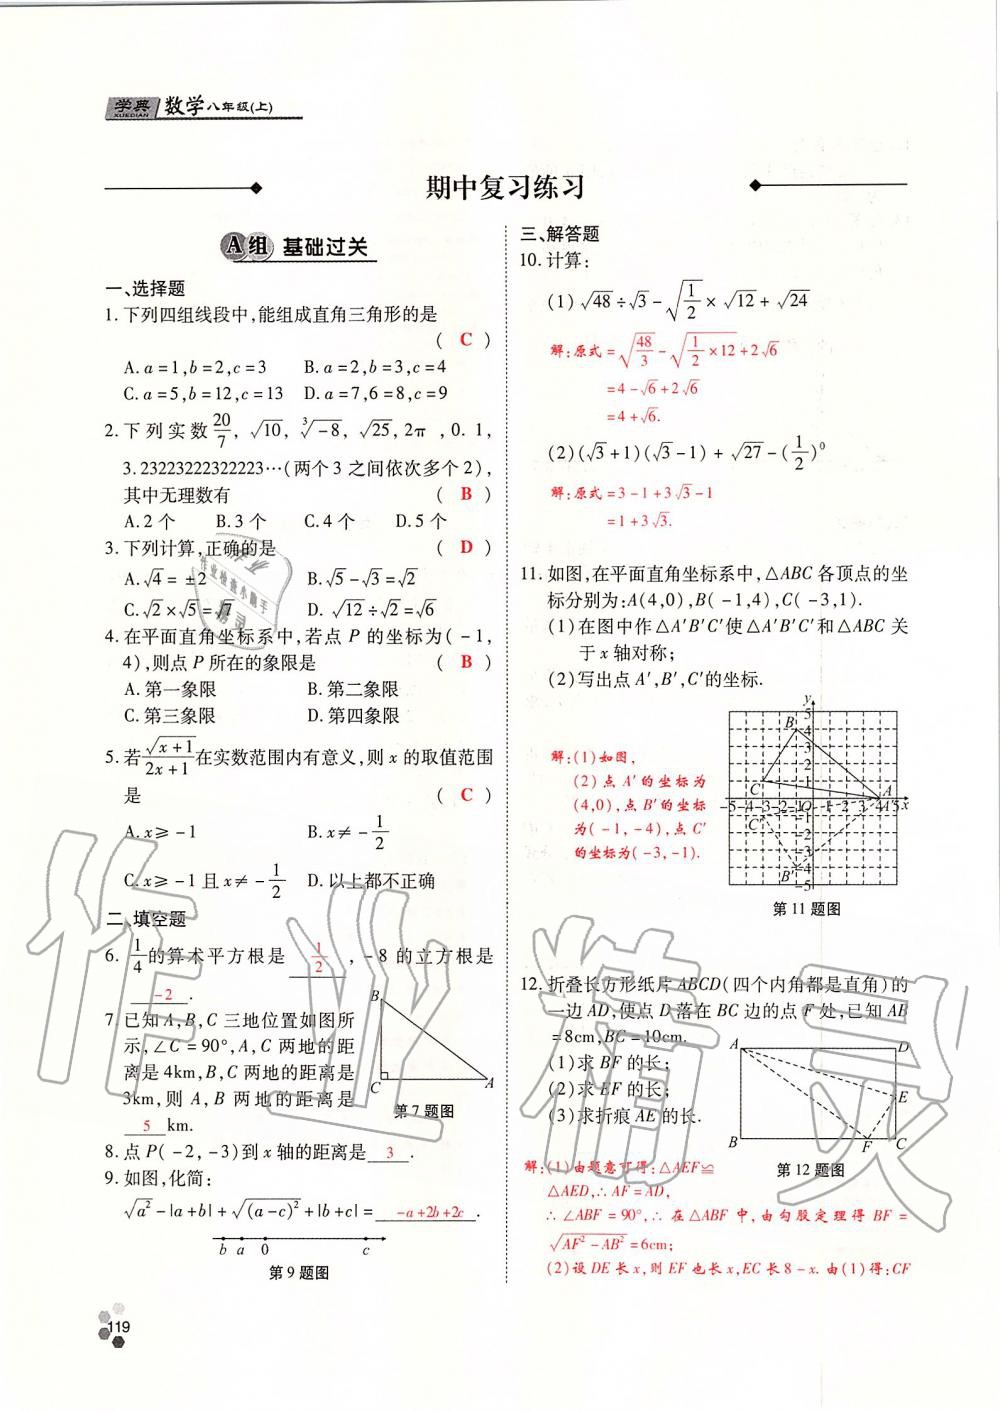 学典 XUEDIAN 数学八年级(上)
期中复习练习
A组 基础过关
一、选择题
1. 下列四组线段中,能组成直角三角形的是
( C )
A. a=1,b=2,c=3 B. a=2,b=3,c=4
C. a=5,b=12,c=13 D. a=7,6=8,c=9
2. 下列实数 20/7, √10, ³√-8, √25, 2π, 0.1,
3.23223222322223…(两个3之间依次多个2),
其中无理数有 ( B )
A. 2个 B. 3个 C. 4个 D. 5个
3. 下列计算,正确的是 ( D )
A. √4=±2 B. √5-√3=√2
C. √2×√5=√7 D. √12÷√2=√6
4. 在平面直角坐标系中,若点 P 的坐标为(-1,
4),则点 P 所在的象限是 ( B )
A. 第一象限 B. 第二象限
C. 第三象限 D. 第四象限
5. 若 √(x+1)/(2x+1) 在实数范围内有意义,则 x 的取值范围
是 ( C )
A. x≥-1 B. x≠-1/2
C. x≥-1且x≠-1/2 D. 以上都不正确
二、填空题
6. 1/4 的算术平方根是 1/2 ,-8的立方根是
-2 .
7. 已知A,B,C三地位置如图所
示,∠C=90°,A,C两地的距
离是4km,B,C两地的距离是
3km,则 A, B 两地的距离是
5 km.
B
C A
第7题图
8. 点P(-2,-3)到x轴的距离是 3 .
9. 如图,化简:
√a²-|a+b|+√(a-c)²+|b+c|= -a+2b+2c .
b a 0 c
第9题图
三、解答题
10. 计算:
(1) √48÷√3-√(1/2)×√12+√24
解:原式=√(48/3)-√(1/2×12)+2√6
=4-√6+2√6
=4+√6.
(2)(√3+1)(√3-1)+√27-(1/2)⁰
解:原式=3-1+3√3-1
=1+3√3.
11. 如图,在平面直角坐标系中,△ABC各顶点的坐
标分别为:A(4,0),B(-1,4),C(-3,1).
(1)在图中作△A′B′C′使△A′B′C′和△ABC关
于x轴对称;
(2)写出点A′,B′,C′的坐标.
解:(1)如图,
(2)点A′的坐标为
(4,0),点B′的坐标
为(-1,-4),点C′
的坐标为(-3,-1).
y
5
B 4
3
2
C 1 A
-5-4-3-2-1O 1 2 3 4A′5 x
C′ -1
-2
-3
B′ -4
-5
第11题图
12. 折叠长方形纸片ABCD(四个内角都是直角)的
一边AD,使点D落在BC边的点F处,已知AB
=8cm,BC=10cm.
(1)求BF的长;
(2)求EF的长;
(3)求折痕AE的长.
A D
E
B F C
第12题图
解:(1)由题意可得:△AEF≌
△AED,∴AF=AD,
∴∠ABF=90°,∴在△ABF中,由勾股定理得BF=
√(AF²-AB²)=6cm;
(2)设DE长x,则EF也长x,EC长8-x.由(1)得:CF
119
作业精灵
作业检查小助手
精灵